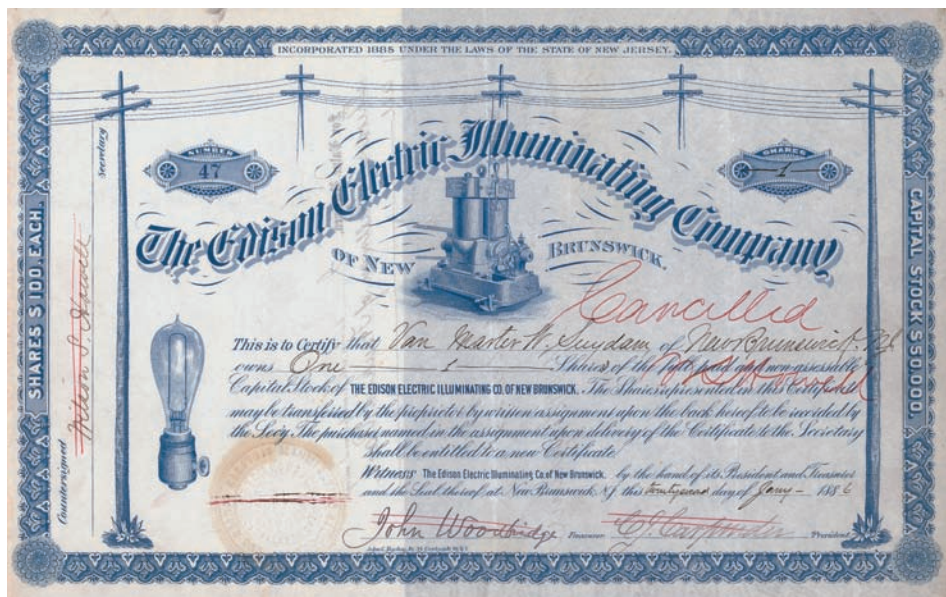 INCORPORATED 1885 UNDER THE LAWS OF THE STATE OF NEW JERSEY.
NUMBER
47
SHARES
1
The Edison Electric Illuminating Company
OF NEW BRUNSWICK.
Cancelled
This is to Certify that Van Marter W. Suydam of New Brunswick. NJ
owns One 1 Shares of the full paid and non assessable
Capital Stock of THE EDISON ELECTRIC ILLUMINATING CO. OF NEW BRUNSWICK. The Shares represented in this Certificate
may be transferred by the proprietor by written assignment upon the back hereof to be recorded by
the Secy. The purchaser named in the assignment upon delivery of the Certificate to the Secretary
shall be entitled to a new Certificate.
Witness The Edison Electric Illuminating Co. of New Brunswick. by the hand of its President and Treasurer
and the Seal thereof at New Brunswick N.J. this day of Jany 1886
John Woodbridge Treasurer President
SHARES $100. EACH.
CAPITAL STOCK $50,000.
Countersigned Secretary